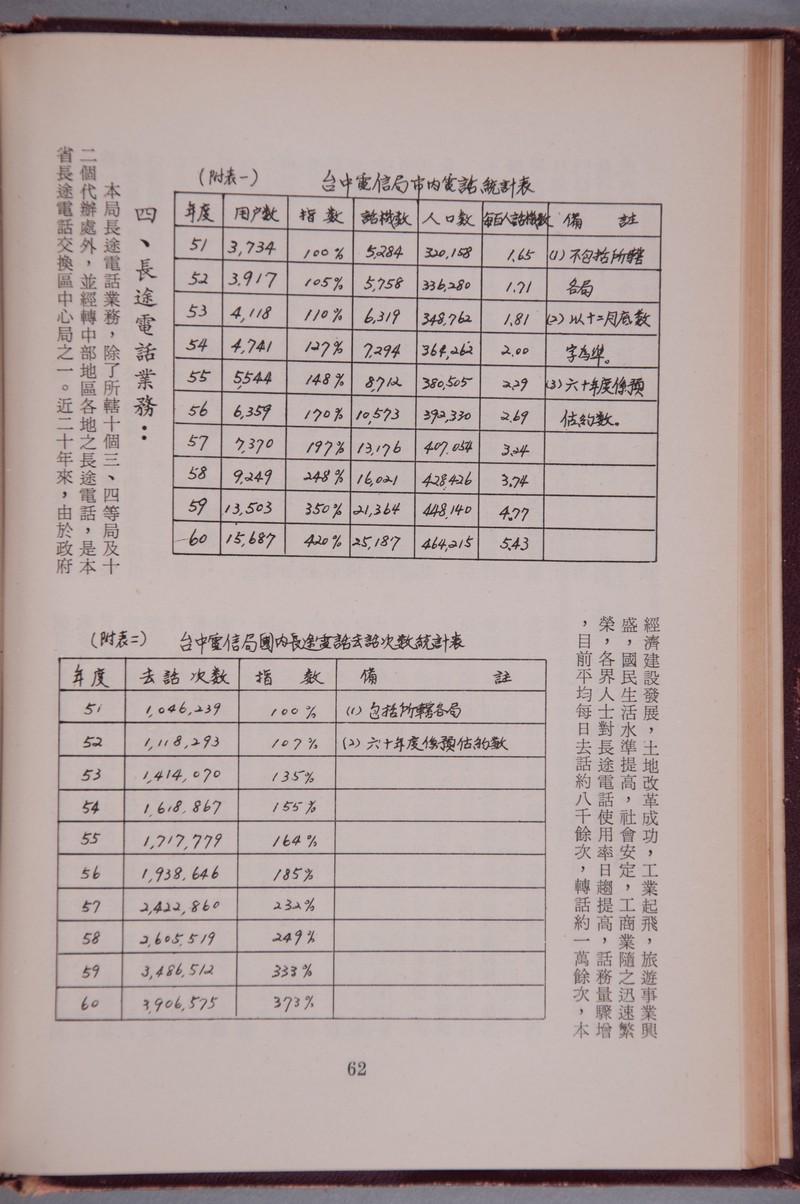 (附表一) 台中電信局市內電話統計表
年度 用户數 指數 話機數 人口數 每百人話機數 備註
51 3,734 100% 5,284 320,158 1.65 (1)不包括所轄
52 3,917 105% 5,758 336,280 1.71 各局
53 4,118 110% 6,319 348,762 1.81 (2)以十二月底數
54 4,741 127% 7,294 364,262 2.00 字為準。
55 5,544 148% 8,712 380,505 2.29 (3)六十年度係預
56 6,359 170% 10,573 392,330 2.69 估約數。
57 7,370 197% 13,176 407,054 3.24
58 9,249 248% 16,021 428,426 3.74
59 13,503 350% 21,364 448,140 4.77
60 15,687 420% 25,187 464,215 5.43
四、長途電話業務：
本局長途電話業務，除了所轄十個三、四等局及十
二個代辦處外，並經轉中部地區各地之長途電話，是本
省長途電話交換區中心局之一。近二十年來，由於政府
經濟建設發展，土地改革成功，工業起飛，旅遊事業興
盛，國民生活水準提高，社會安定，工商業隨之迅速繁
榮，各界人士對長途電話使用率日趨提高，話務量驟增
，目前平均每日去話約八千餘次，轉話約一萬餘次，本
(附表二) 台中電信局國內長途電話去話次數統計表
年度 去話次數 指數 備註
51 1,046,239 100% (1)包括所轄各局
52 1,118,293 107% (2)六十年度係預估約數
53 1,414,070 135%
54 1,618,867 155%
55 1,717,779 164%
56 1,938,646 185%
57 2,422,860 232%
58 2,605,519 249%
59 3,486,512 333%
60 3,906,575 373%
62